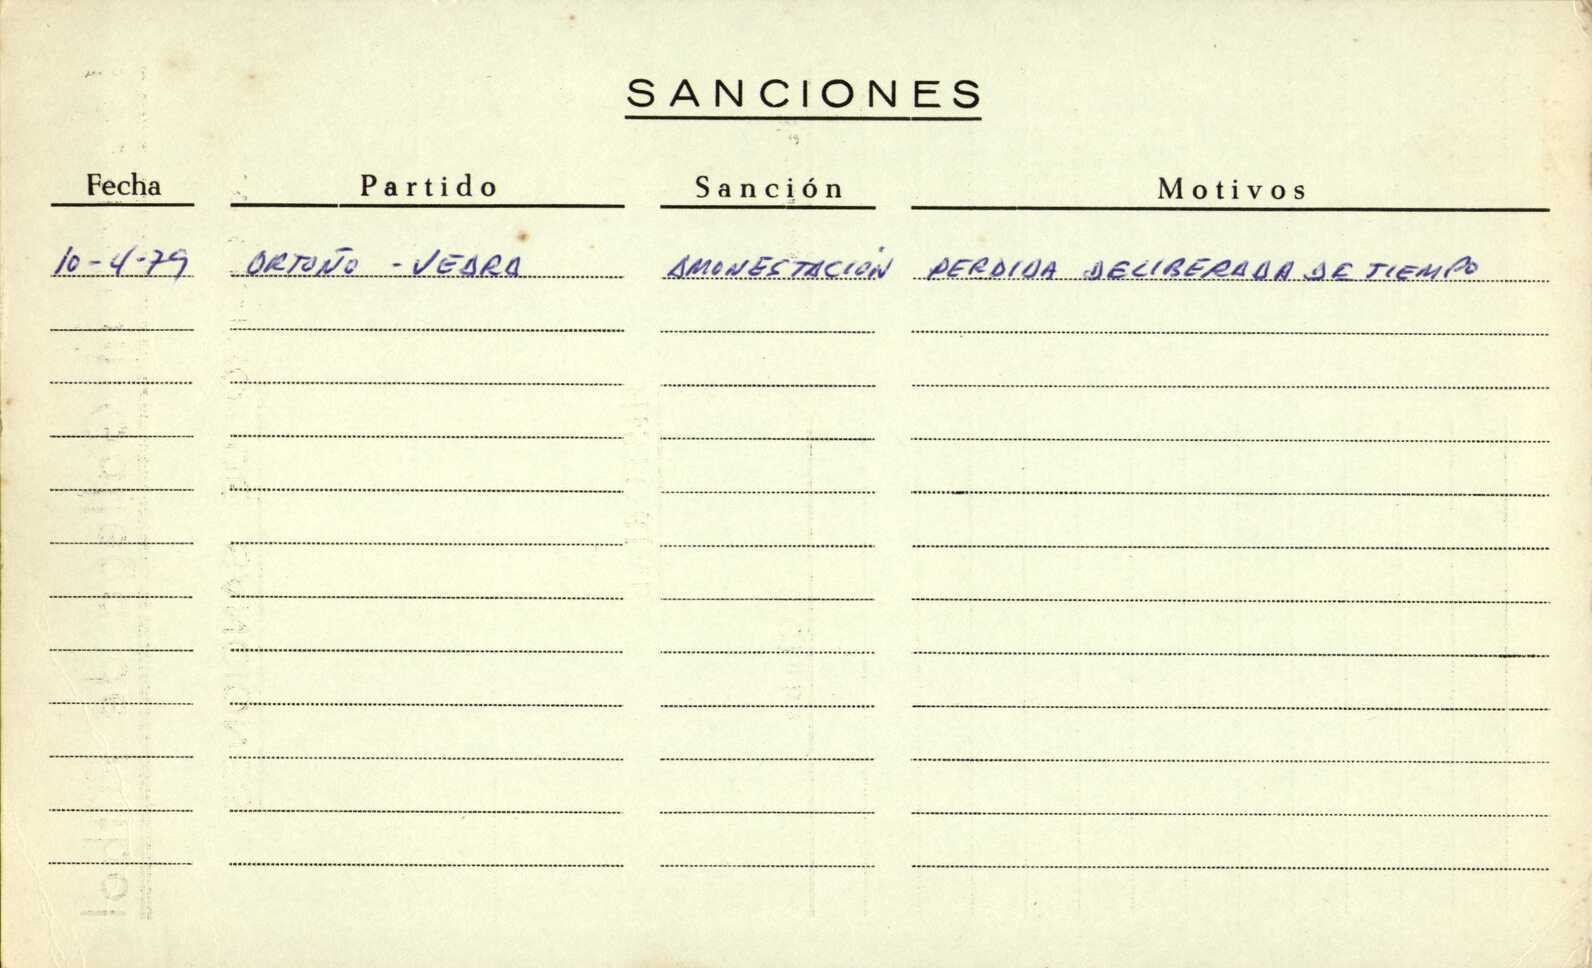 SANCIONES
Fecha Partido Sanción Motivos
10-4-79 ORTOÑO - VEDRA AMONESTACIÓN PERDIDA DELIBERADA DE TIEMPO